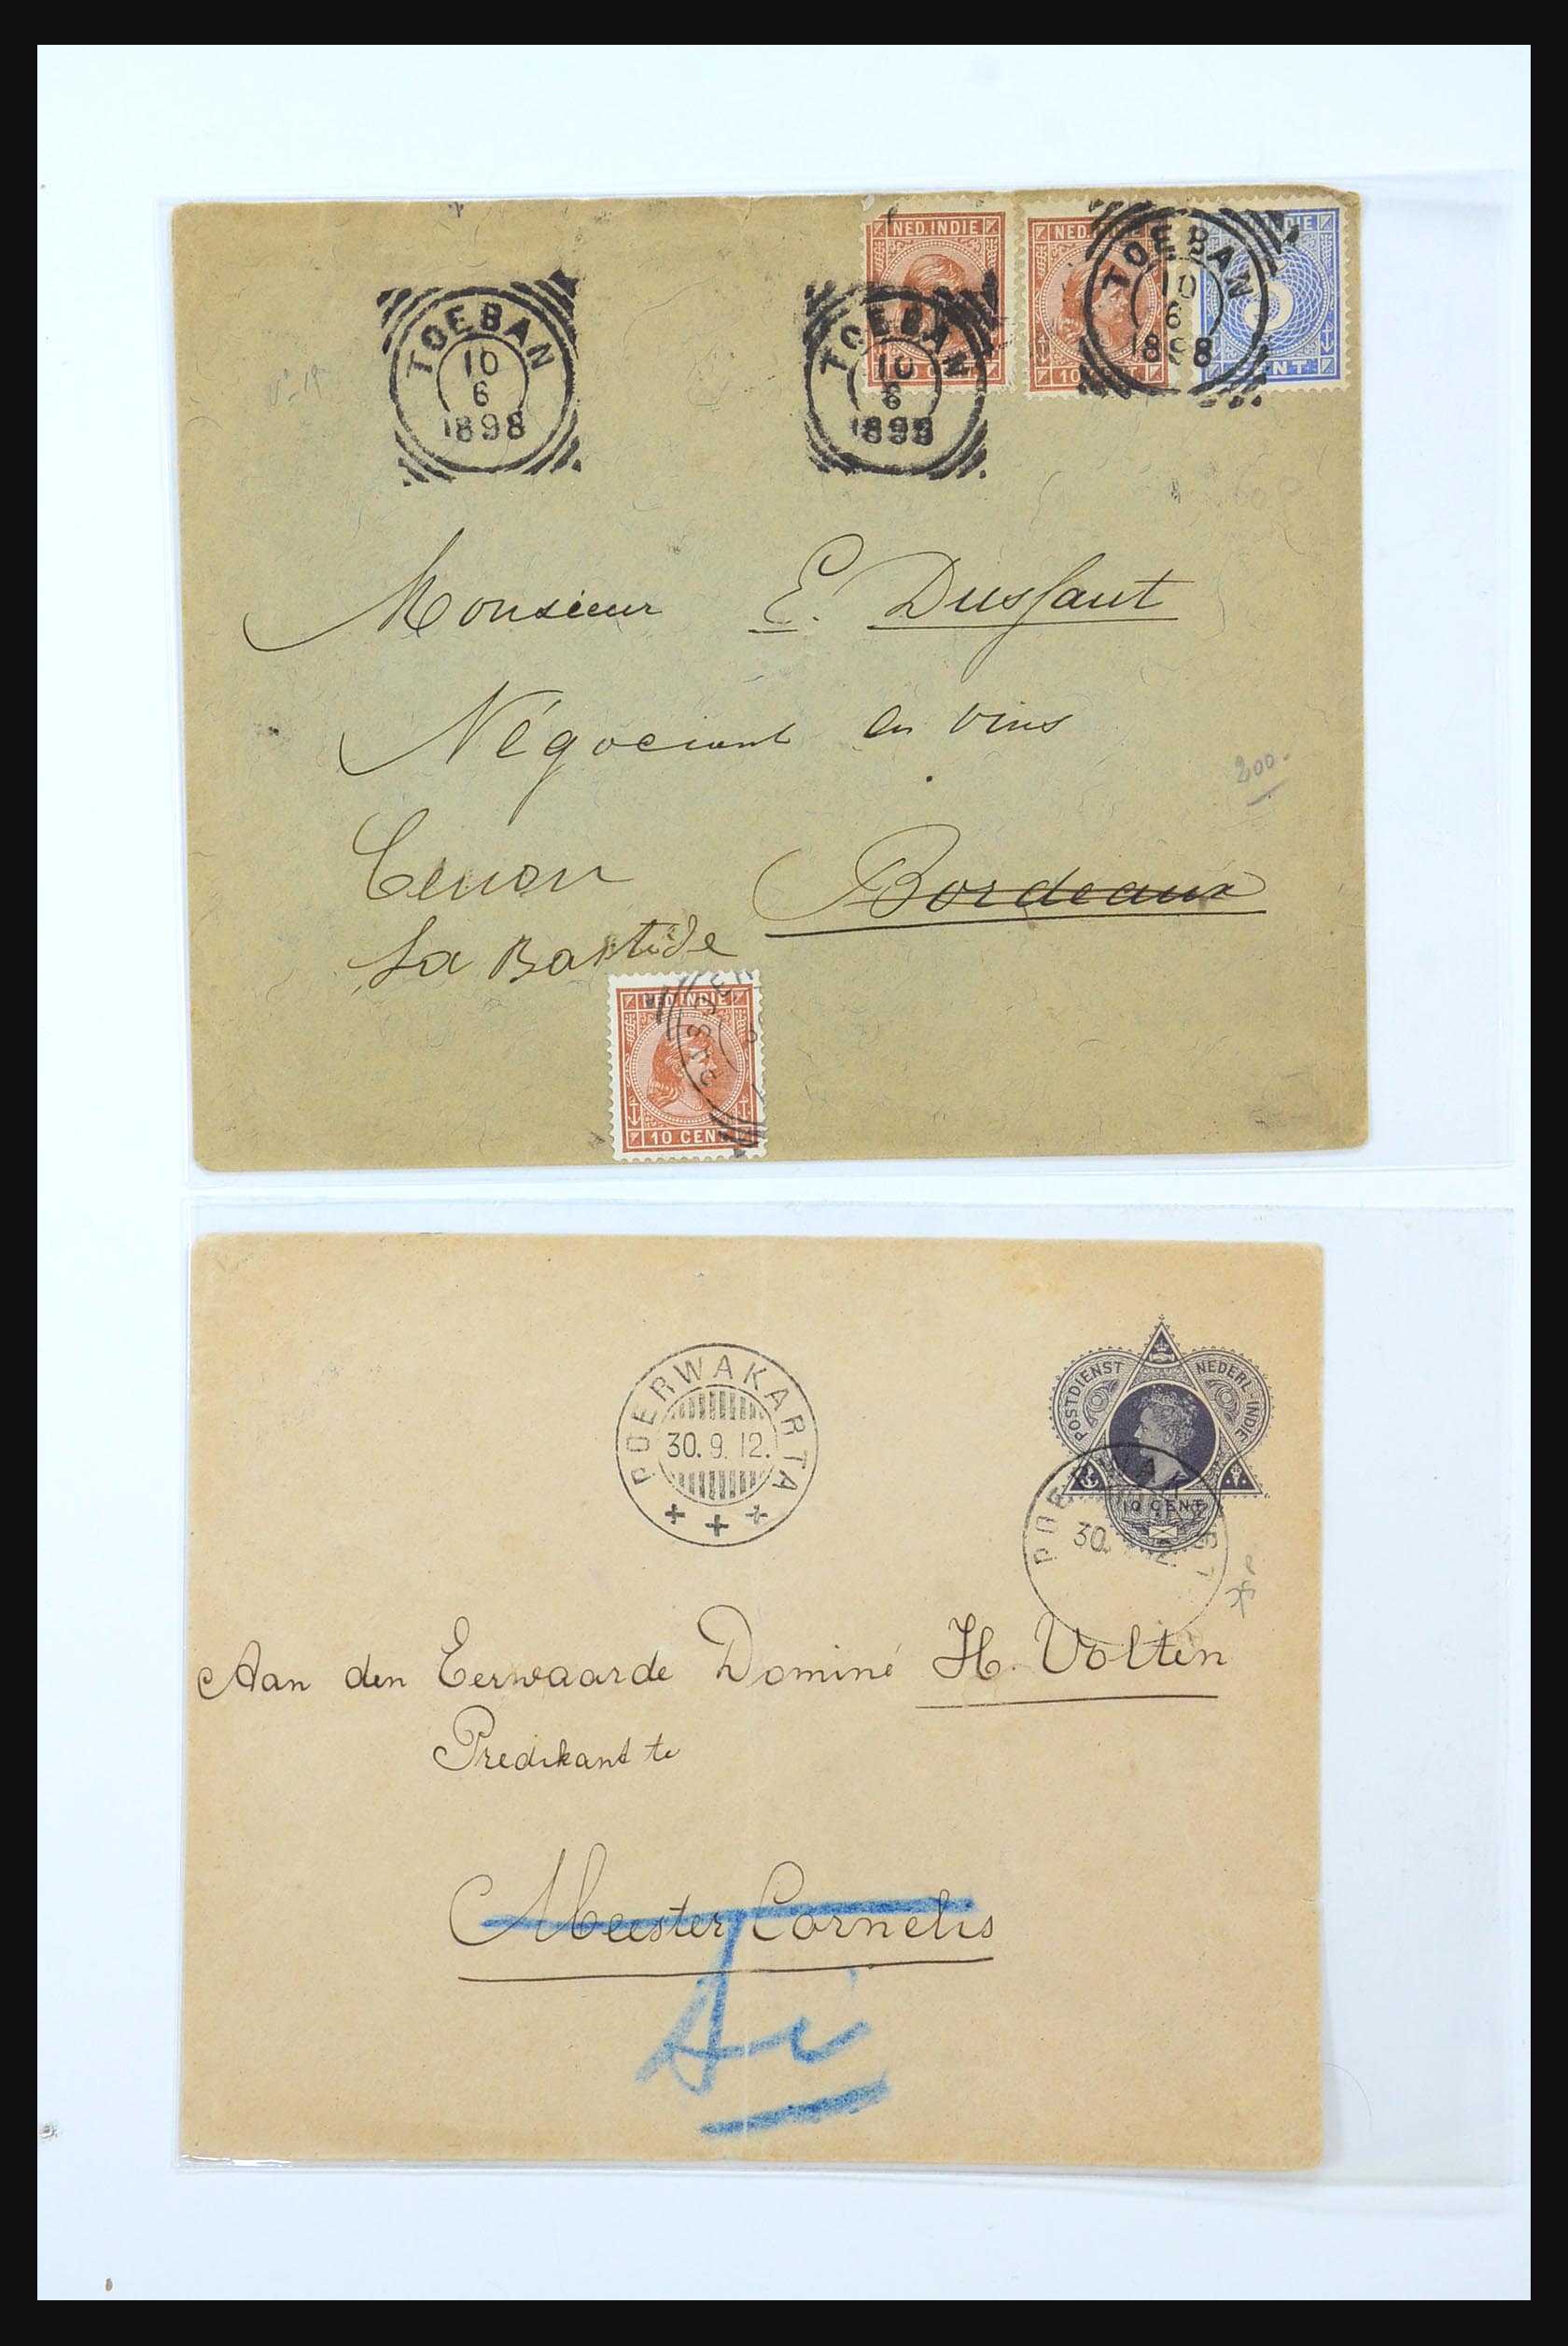 NED. INDIE
NED. INDIE
10 CENT
5
CENT
TOEBAN
10
6
1898
TOEBAN
10
6
1898
TOEBAN
10
6
1898
Monsieur E. Dussaut
Négociant en vins
200.-
Cenon Bordeaux
La Bastide
NED. INDIE
10 CENT
POSTDIENST NEDERL-INDIE
10 CENT
POERWAKARTA
30.9.12.
Aan den Eerwaarde Dominé H. Volten
Predikant te
Meester Cornelis